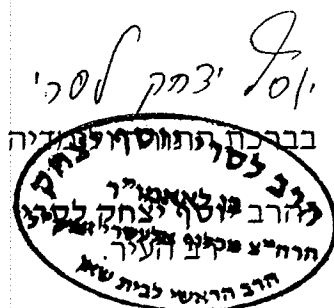 יוסף יצחק לסרי
בברכת התורה ולומדיה
הרב לסרי יוסף יצחק
בן לאאמו"ר
הרב יוסף יצחק לסרי
הרה"צ מכלוף
רב העיר.
הרב הראשי לבית שאן